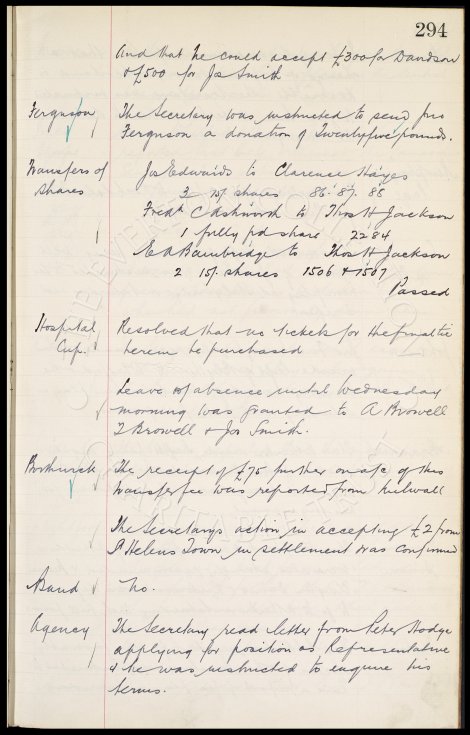 294
And that he could accept £300 for Davidson
& £500 for Jos Smith
Ferguson
The Secretary was instructed to send Jno
Ferguson a donation of twentyfive pounds.
Transfers of
Shares
Jos Edwards to Clarence Hayes
3 15/. shares 86. 87. 88
Fredk C Ashworth to Thos H Jackson
1 fully pd share 2284
E A Bainbridge to Thos H Jackson
2 15/. shares 1506 & 1507
Passed
Hospital
Cup.
Resolved that no tickets for the final tie
herein be purchased
Leave of absence until Wednesday
morning was granted to A Browell
T Browell & Jos Smith.
Borthwick
The receipt of £75 further on a/c of this
transfer fee was reported from Millwall
The Secretary's action in accepting £2 from
St Helens Town in settlement was confirmed
Band
No.
Agency
The Secretary read letter from Peter Hodge
applying for position as Representative
& he was instructed to enquire his
terms.